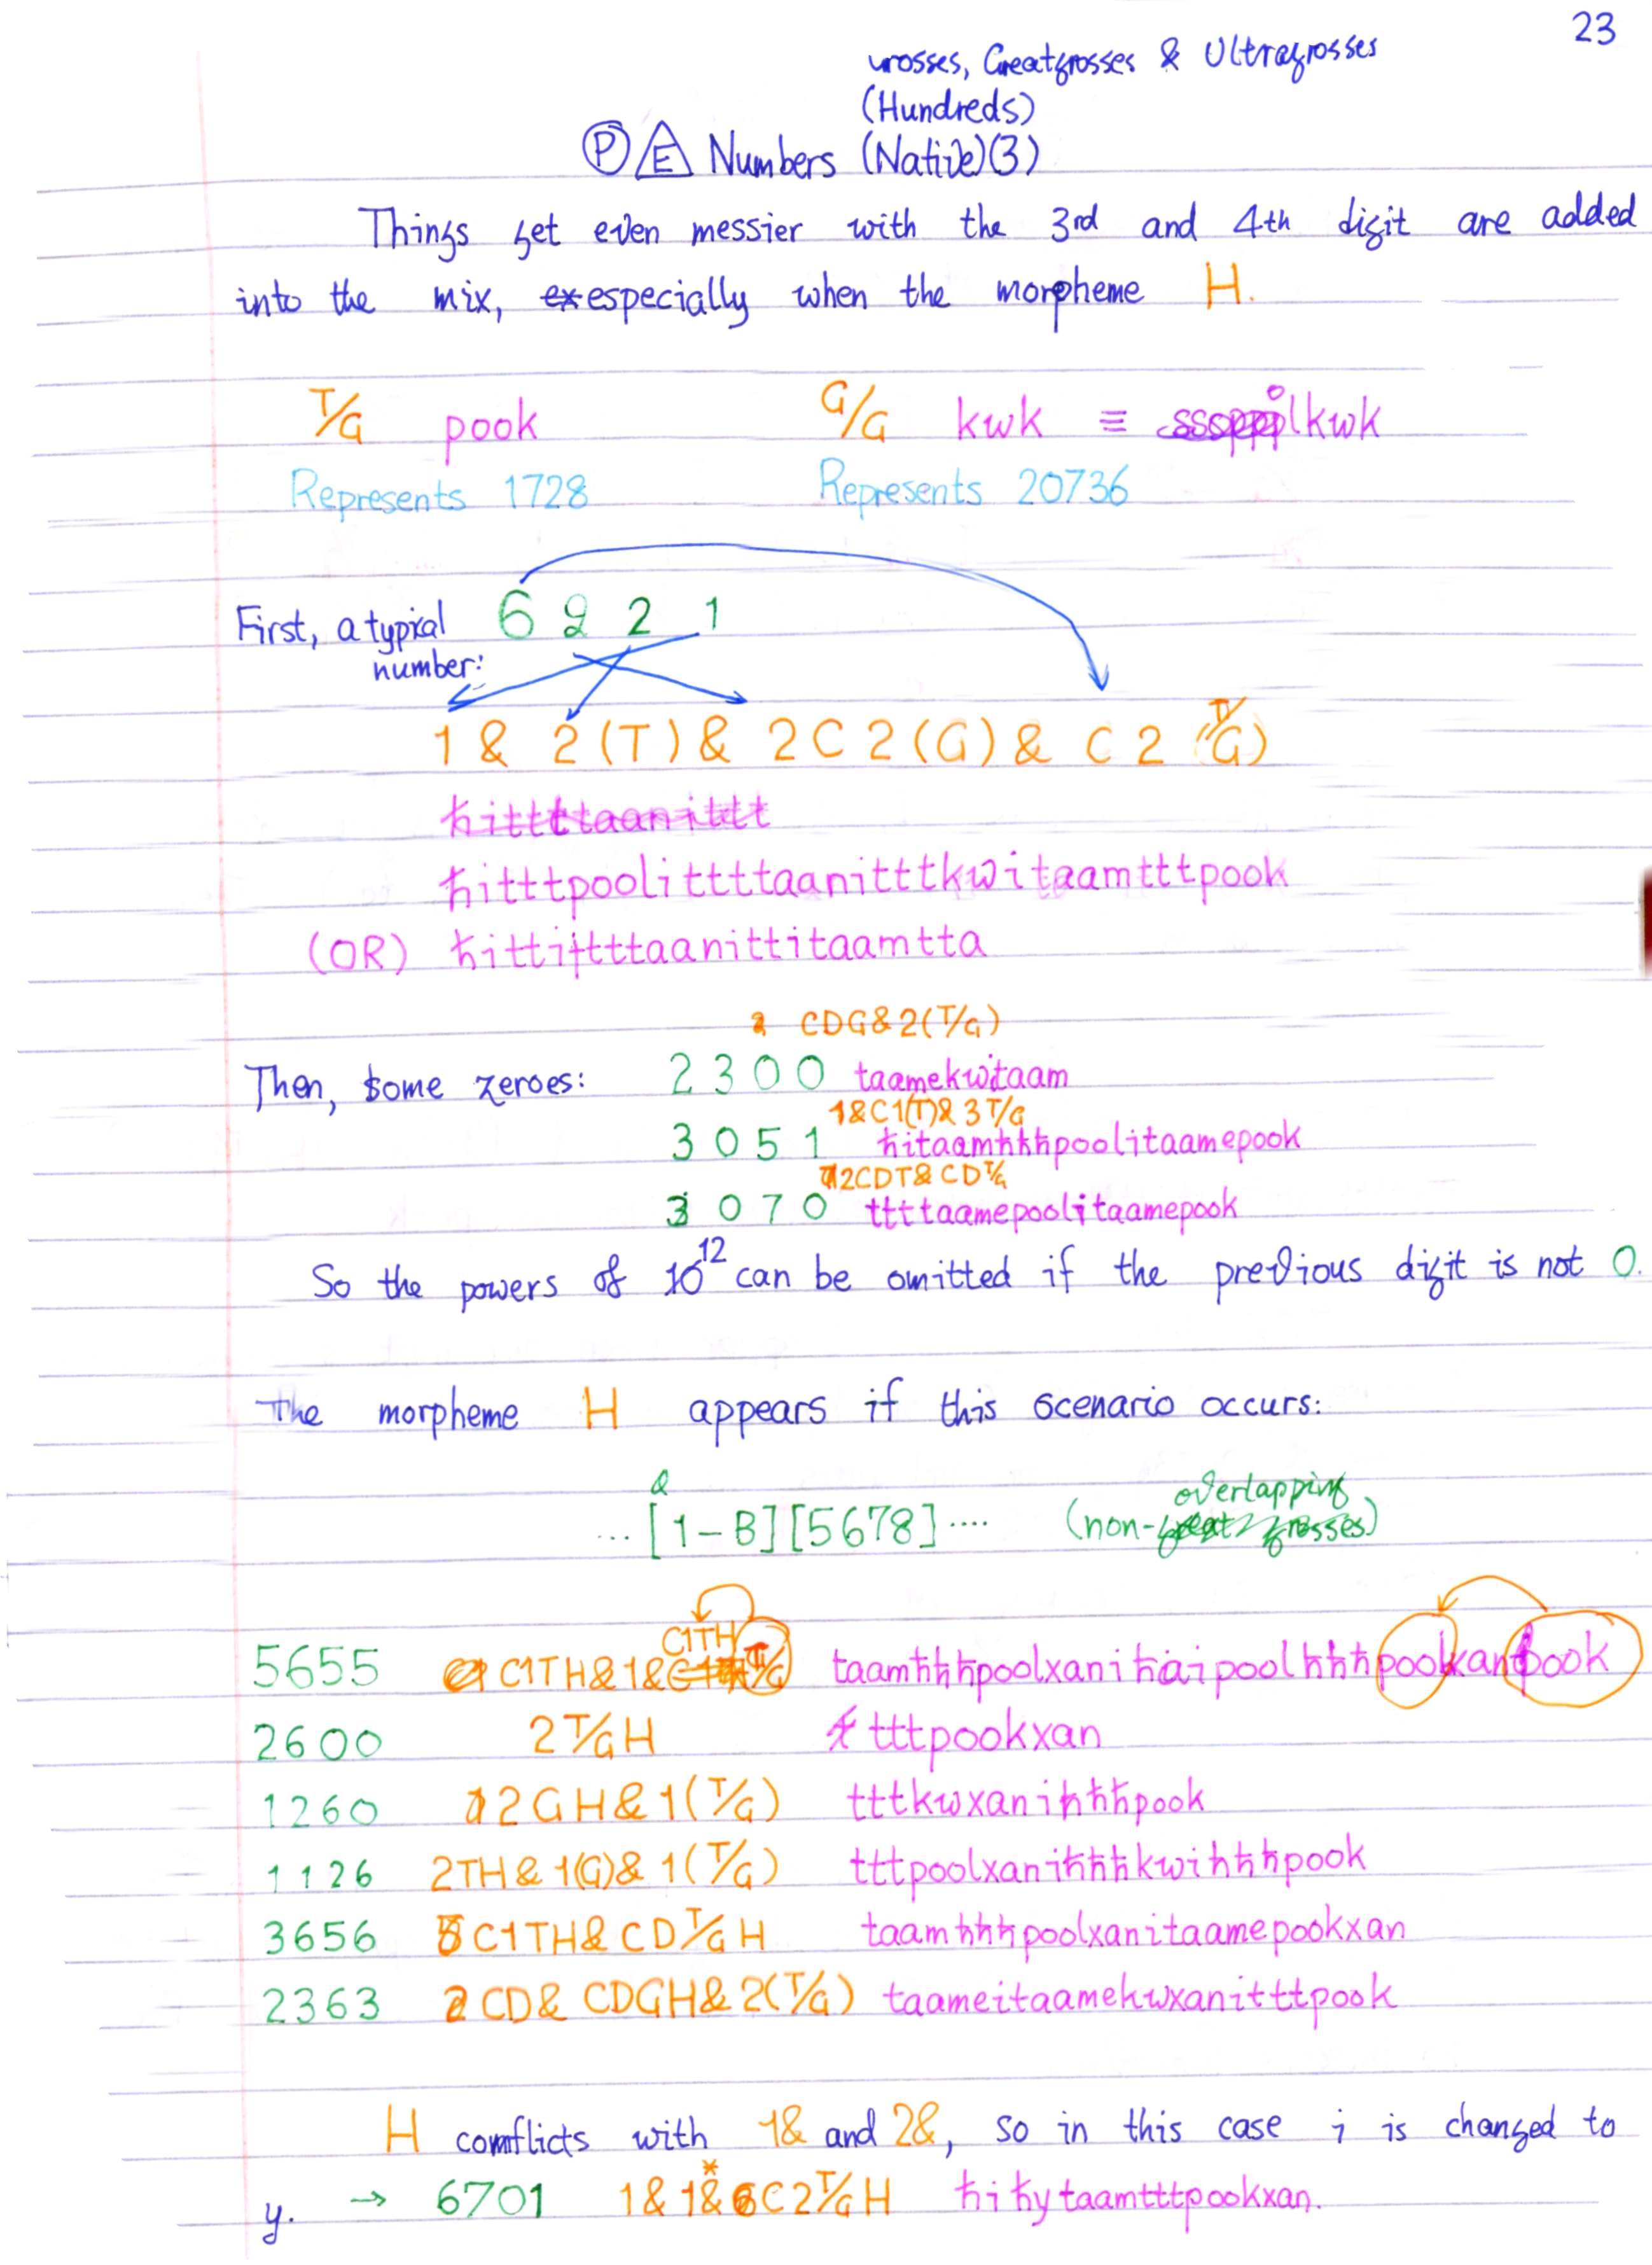 23
Grosses, Greatgrosses & Ultragrosses
(Hundreds)
Ⓟ E Numbers (Native)(3)
Things get even messier with the 3rd and 4th digit are added
into the mix, especially when the morpheme H.
T/G pook G/G kwk ≡ lkwk
Represents 1728 Represents 20736
First, a typical number: 6 2 2 1
1 & 2 (T) & 2 C 2 (G) & C 2 (T/G)
ħittttaanittt
ħitttpoolittttaanitttkwitaamtttpook
(OR) ħittittttaanittitaamtta
CDG&2(T/G)
Then, some zeroes: 2 3 0 0 taamekwitaam
1&C1(T)&3T/G
3 0 5 1 ħitaamħħħpoolitaamepook
2CDT&CDT/G
3 0 7 0 tttaamepoolitaamepook
So the powers of 10¹² can be omitted if the previous digit is not 0.
The morpheme H appears if this scenario occurs:
&
... [1-B][5678] .... (non-overlapping)
C1TH
5655 C1TH&1& T/G taamħħħpoolxaniħaipoolħħħpookxanpook
2600 2T/GH tttpookxan
1260 2GH&1(T/G) tttkwxaniħħħpook
1126 2TH&1(G)&1(T/G) tttpoolxaniħħħkwiħħħpook
3656 C1TH&CDT/GH taamħħħpoolxanitaamepookxan
2363 CD&CDGH&2(T/G) taameitaamekwxanitttpook
H conflicts with 1& and 2&, so in this case i is changed to
y. → 6701 1&1&*C2T/GH ħiħytaamtttpookxan.